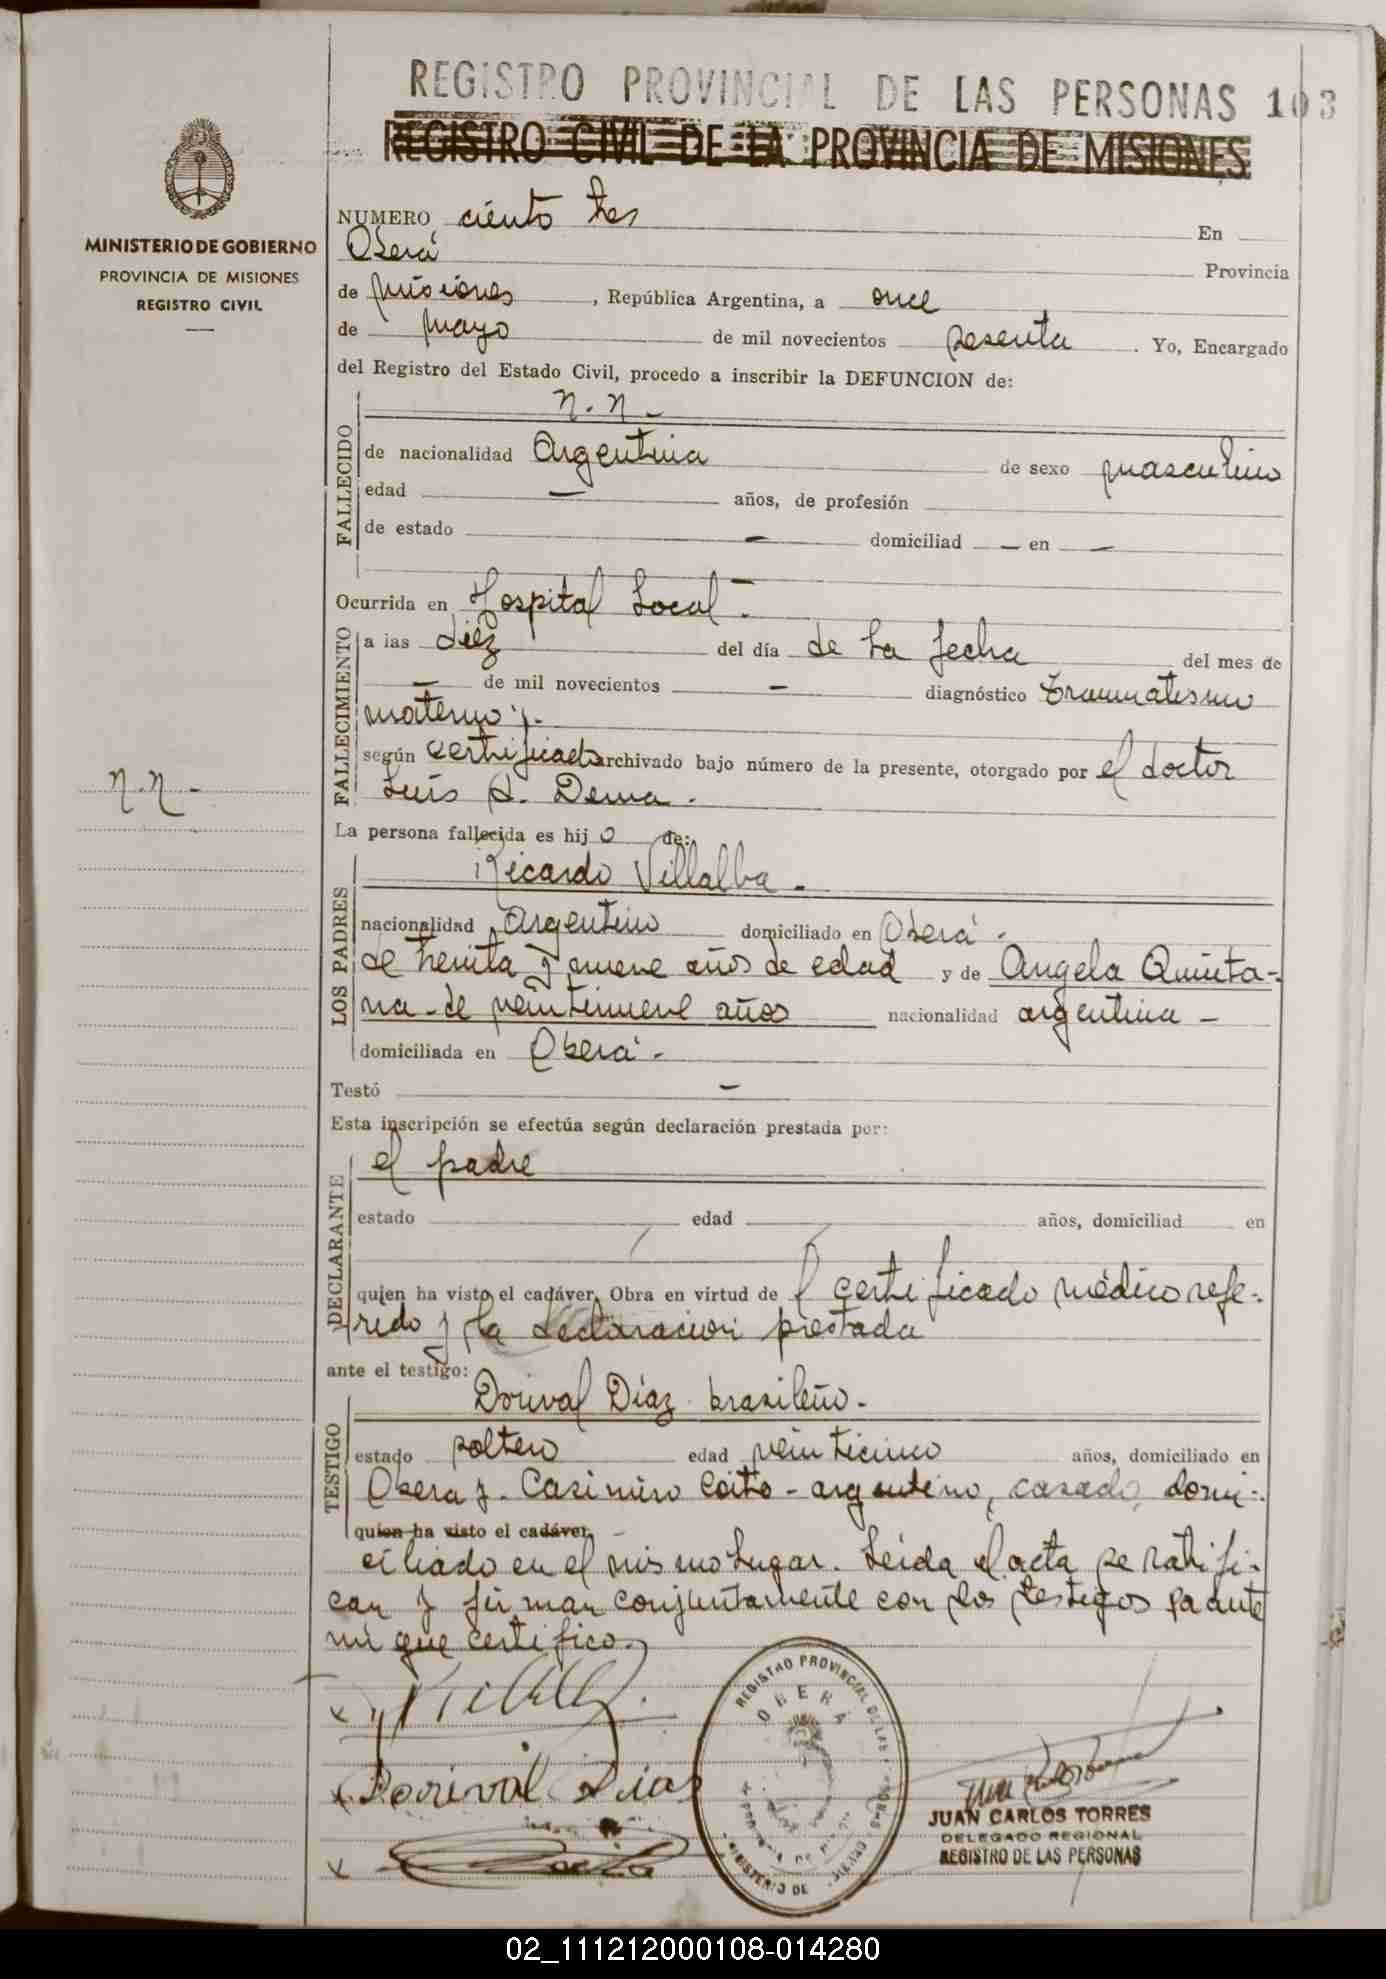 REGISTRO PROVINCIAL DE LAS PERSONAS 103
REGISTRO CIVIL DE LA PROVINCIA DE MISIONES
MINISTERIO DE GOBIERNO
PROVINCIA DE MISIONES
REGISTRO CIVIL
NUMERO ciento tres En
Oberá Provincia
de Misiones, República Argentina, a once
de Mayo de mil novecientos sesenta. Yo, Encargado
del Registro del Estado Civil, procedo a inscribir la DEFUNCION de:
n.n-
FALLECIDO
de nacionalidad Argentina de sexo masculino
edad — años, de profesión
de estado — domiciliad — en —
Ocurrida en Hospital Local-.
FALLECIMIENTO
a las diez del día de la fecha del mes de
— de mil novecientos — diagnóstico traumatismo
materno.
según certificado archivado bajo número de la presente, otorgado por el doctor
Luís A. Dema.
n.n-
La persona fallecida es hijo de:
Ricardo Villalba-
LOS PADRES
nacionalidad Argentino domiciliado en Oberá.
de treinta y nueve años de edad y de Angela Quinta-
na-de veintinueve años nacionalidad argentina-
domiciliada en Oberá-
Testó —
Esta inscripción se efectúa según declaración prestada por:
el padre
DECLARANTE
estado edad años, domiciliad en
quien ha visto el cadáver. Obra en virtud de l certificado médico refe-
rido y la declaracion prestada
ante el testigo:
Dorival Díaz brasileño.
TESTIGO
estado soltero edad veinticinco años, domiciliado en
Obera y. Casimiro Coito-argentino, casado, domi-
quien ha visto el cadáver.
ciliado en el mismo lugar. Leida el acta se ratifi-
can y firman conjuntamente con los testigos pa ante
mi que certifico.
x
x Dorival Dias
x
REGISTRO PROVINCIAL DE LAS PERSONAS
OBERÁ
MINISTERIO DE
JUAN CARLOS TORRES
DELEGADO REGIONAL
REGISTRO DE LAS PERSONAS
02_111212000108-014280